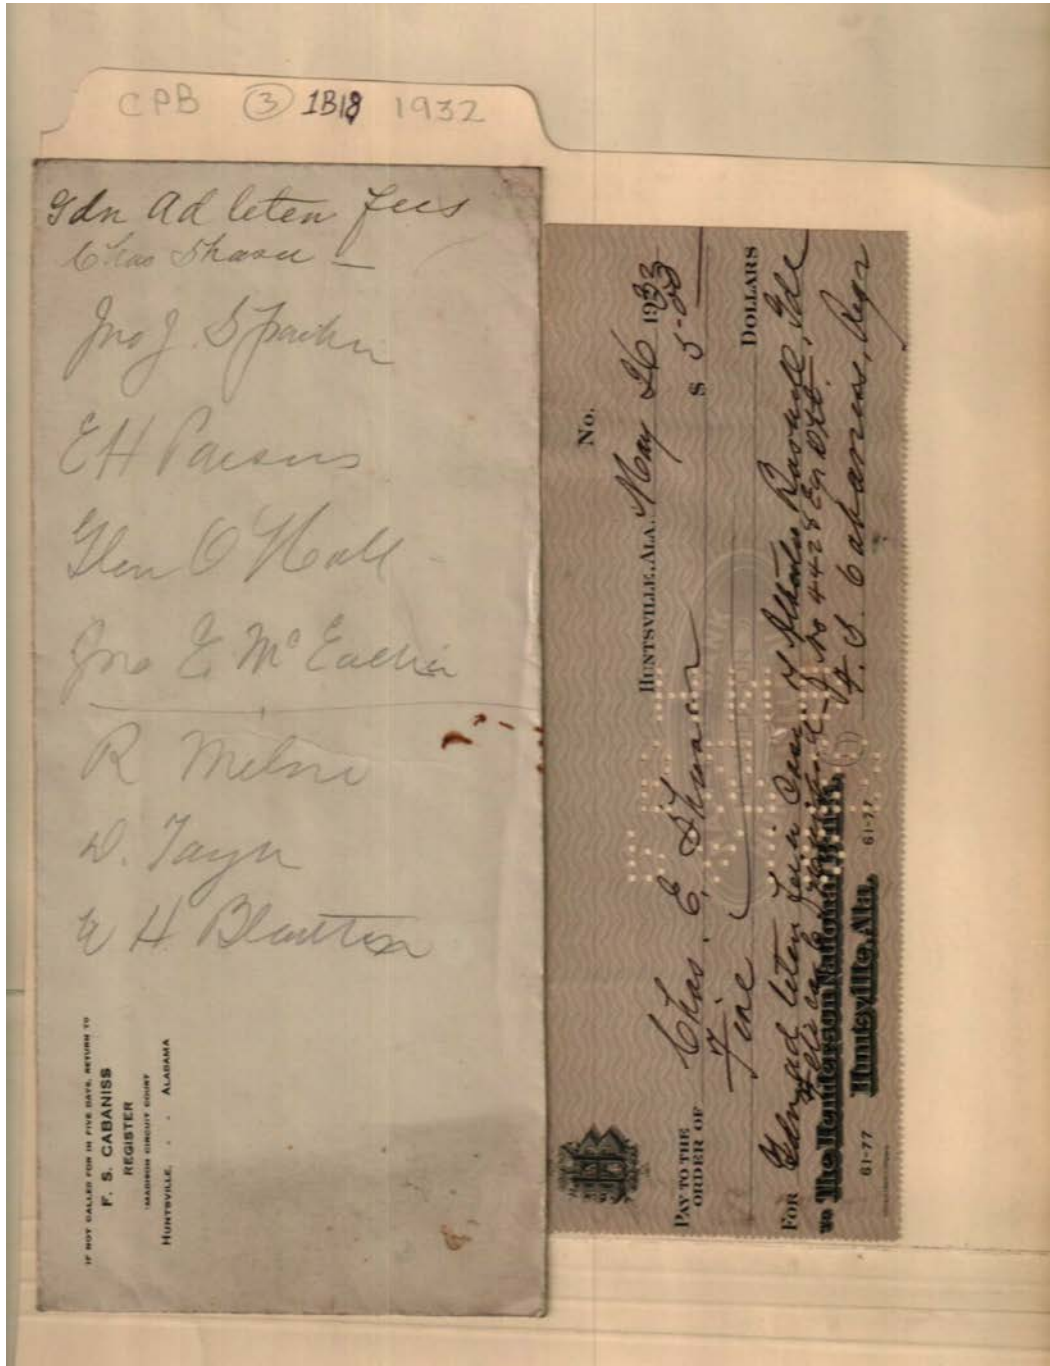 CPB ③ 1B18 1932
Gdn Ad leten Fees
Chas Shaver
Jno J. Sparkman
E H Parsons
Glen O Hall
Jno E. McEachin
R Milner
D. Taylr
E H Blanton
IF NOT CALLED FOR IN FIVE DAYS, RETURN TO
F. S. CABANISS
REGISTER
MADISON CIRCUIT COURT
HUNTSVILLE, - - ALABAMA
No.
HUNTSVILLE, ALA. May 26 1933
PAY TO THE
ORDER OF Chas. E. Shaver $ 5.00
Five DOLLARS
FOR Gdn ad leten fee in case of
No 4428
TO The Henderson National Bank, F. S. Cabaniss, Regr
61-77 Huntsville, Ala. 61-77